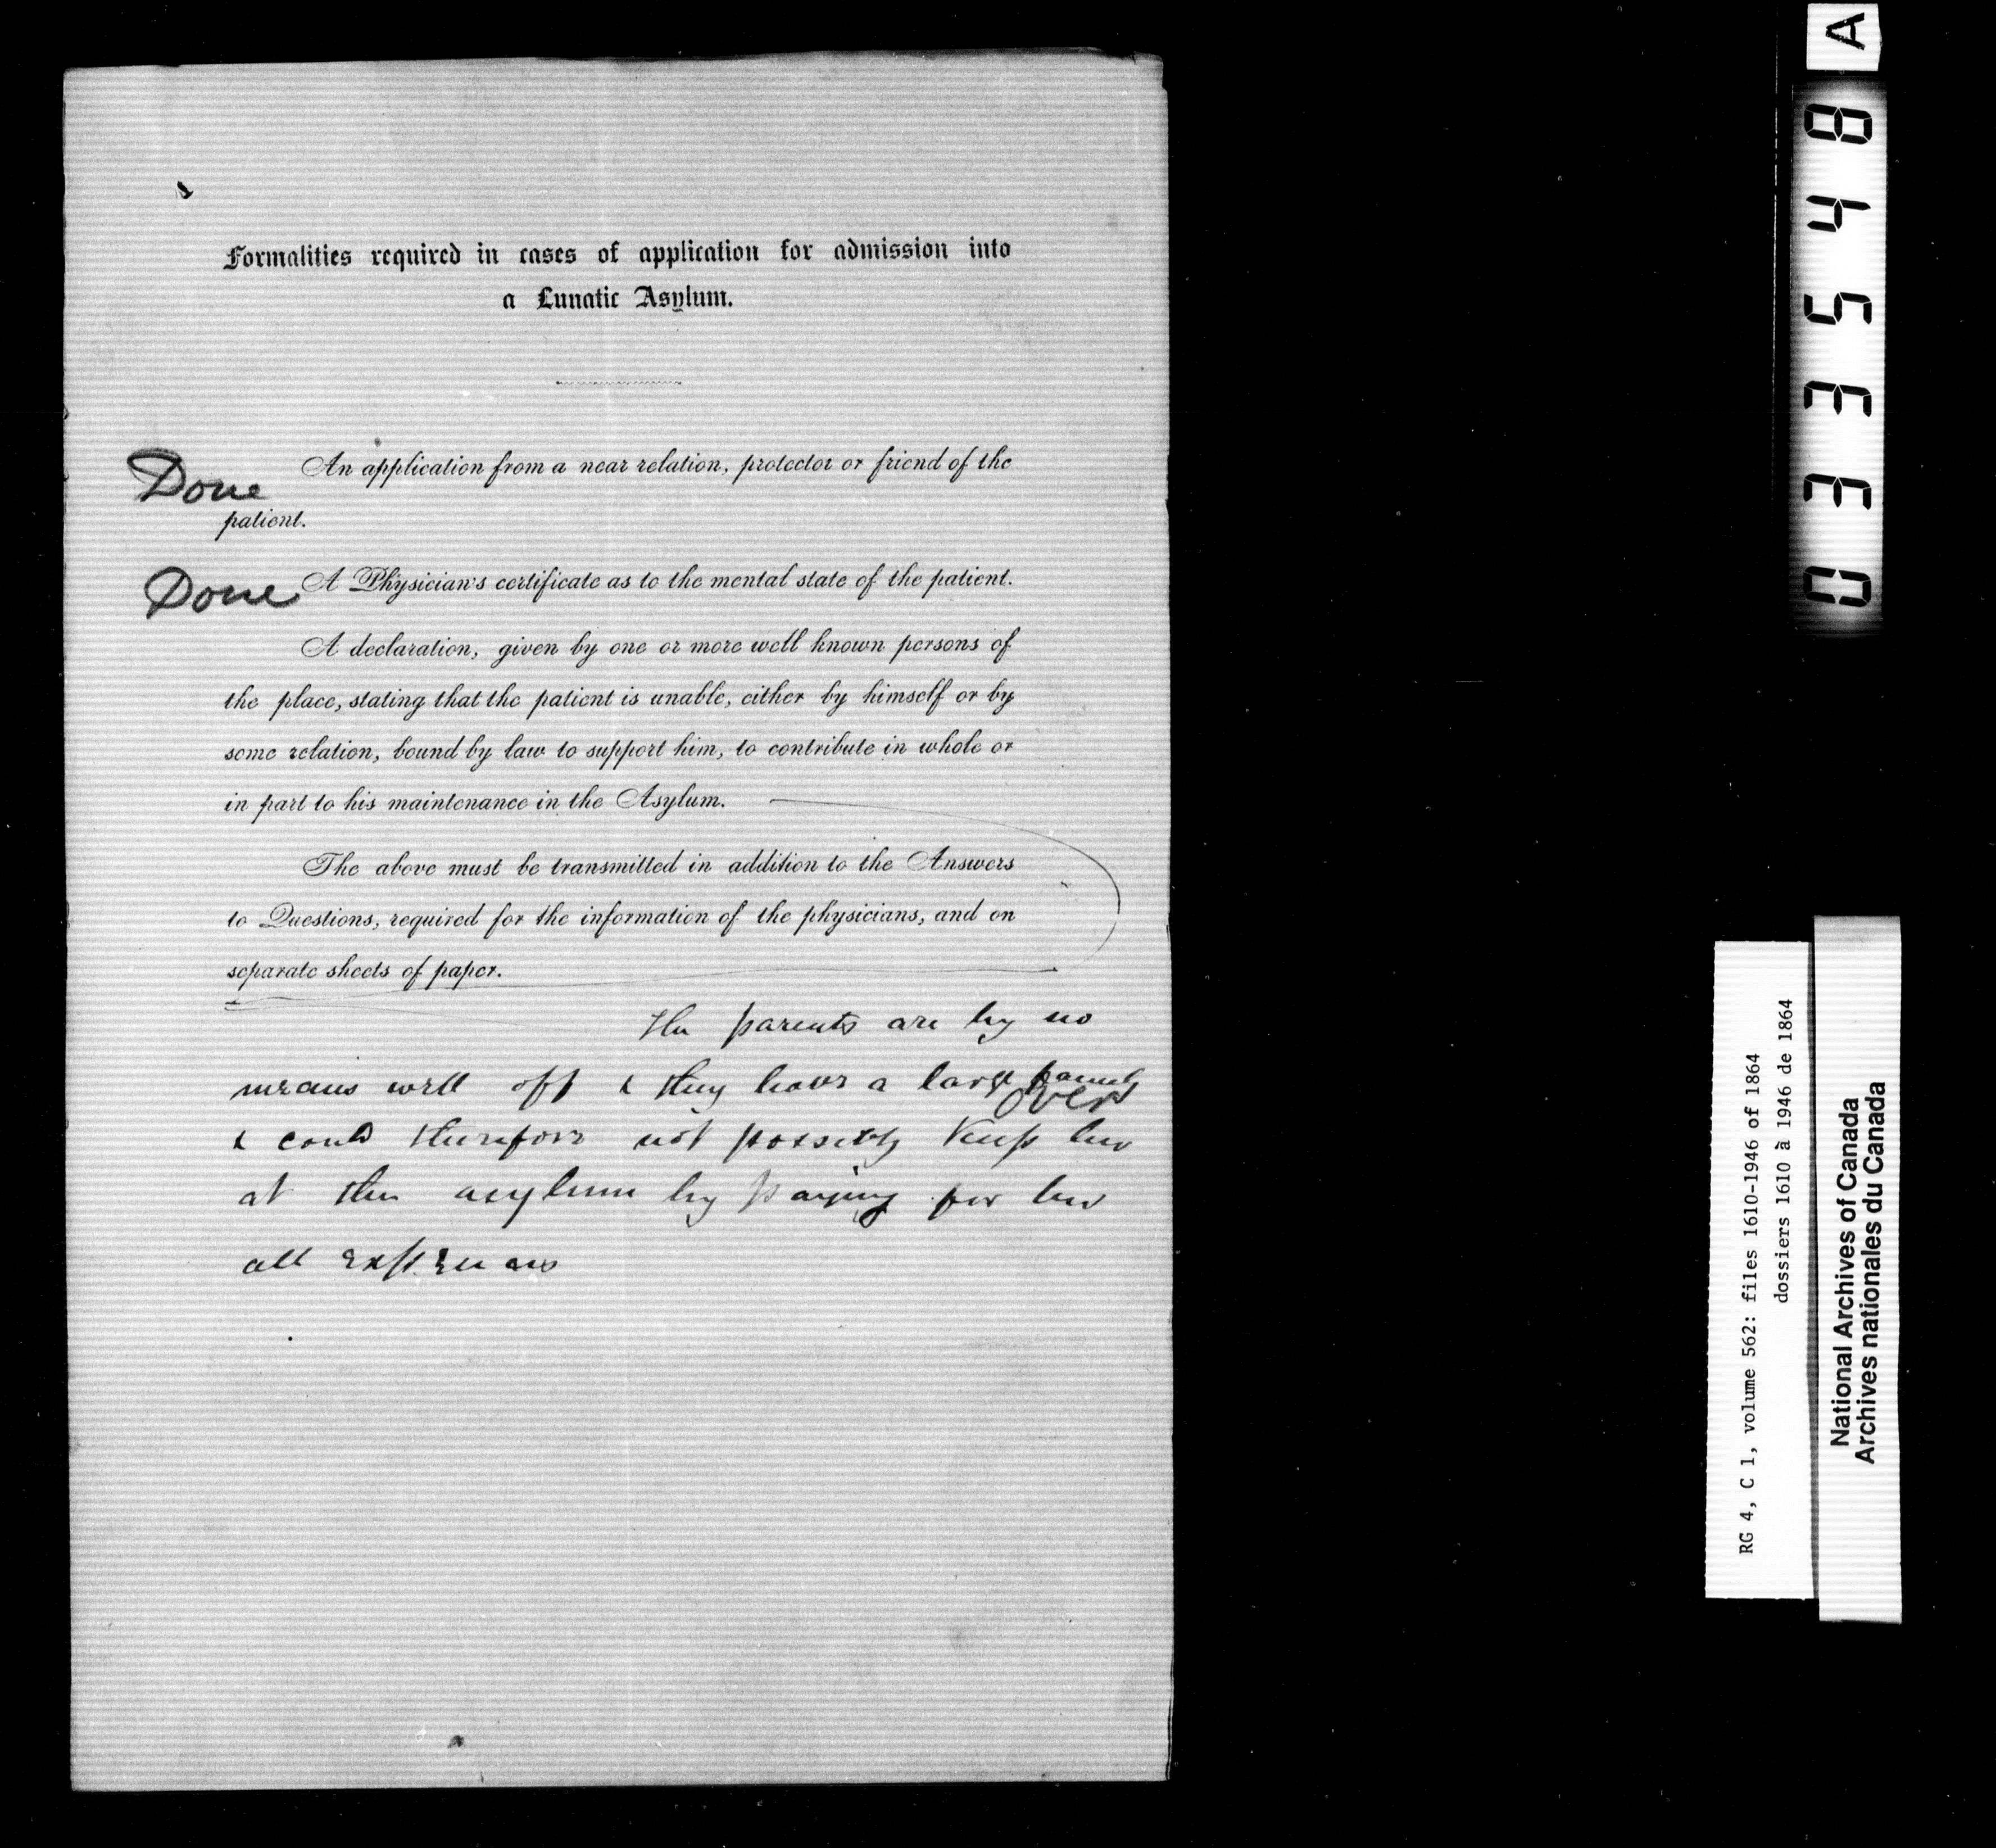 Formalities required in cases of application for admission into
a Lunatic Asylum.
Done An application from a near relation, protector or friend of the
patient.
Done A Physician's certificate as to the mental state of the patient.
A declaration, given by one or more well known persons of
the place, stating that the patient is unable, either by himself or by
some relation, bound by law to support him, to contribute in whole or
in part to his maintenance in the Asylum.
The above must be transmitted in addition to the Answers
to Questions, required for the information of the physicians, and on
separate sheets of paper.
The parents are by no
means well off & they have a large family
over
& could therefore not possibly keep her
at the asylum by paying for her
all expenses
A
033548
RG 4, C 1, volume 562: files 1610-1946 of 1864
dossiers 1610 à 1946 de 1864
National Archives of Canada
Archives nationales du Canada